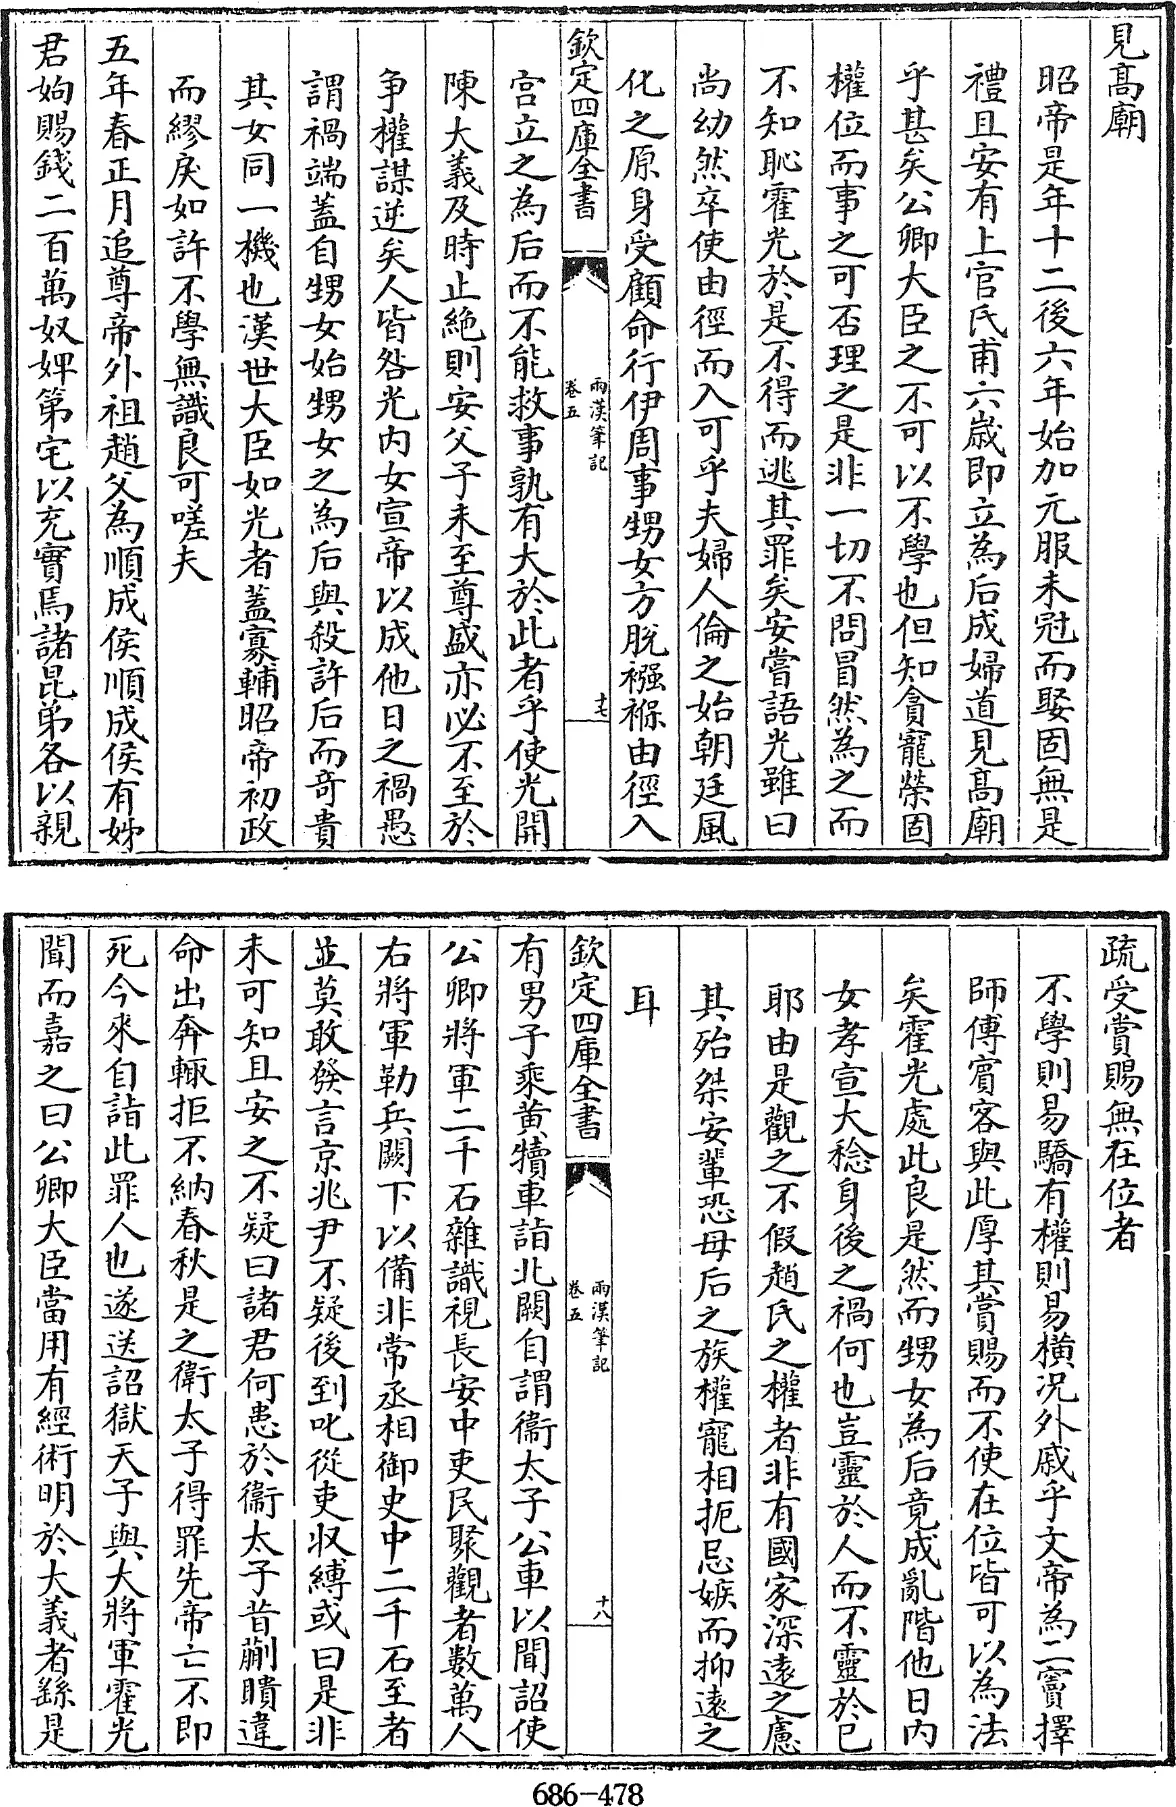 見髙廟
昭帝是年十二後六年始加元服未冠而娶固無是
禮且安有上官氏甫六嵗即立為后成婦道見髙廟
乎甚矣公卿大臣之不可以不學也但知貪寵榮固
權位而事之可否理之是非一切不問冒然為之而
不知恥霍光於是不得而逃其罪矣安嘗語光雖曰
尚幼然卒使由徑而入可乎夫婦人倫之始朝廷風
化之原身受顧命行伊周事甥女方脫襁褓由徑入
欽定四庫全書
兩漢筆記
卷五
十七
宫立之為后而不能救事孰有大於此者乎使光開
陳大義及時止絶則安父子未至尊盛亦必不至於
争權謀逆矣人皆咎光内女宣帝以成他日之禍愚
謂禍端蓋自甥女始甥女之為后與殺許后而奇貴
其女同一機也漢世大臣如光者蓋寡輔昭帝初政
而繆戾如許不學無識良可嗟夫
五年春正月追尊帝外祖趙父為順成侯順成侯有姊
君姁賜錢二百萬奴婢第宅以充實焉諸昆弟各以親
疏受賞賜無在位者
不學則易驕有權則易横况外戚乎文帝為二竇擇
師傅賓客與此厚其賞賜而不使在位皆可以為法
矣霍光處此良是然而甥女為后竟成亂階他日内
女孝宣大稔身後之禍何也豈靈於人而不靈於已
耶由是觀之不假趙氏之權者非有國家深逺之慮
其殆桀安輩恐母后之族權寵相扼忌嫉而抑逺之
耳
欽定四庫全書
兩漢筆記
卷五
十八
有男子乘黄犢車詣北闕自謂衞太子公車以聞詔使
公卿將軍二千石雜識視長安中吏民聚觀者數萬人
右將軍勒兵闕下以備非常丞相御史中二千石至者
並莫敢發言京兆尹不疑後到叱從吏收縛或曰是非
未可知且安之不疑曰諸君何患於衞太子昔蒯聵違
命出奔輒拒不納春秋是之衞太子得罪先帝亡不即
死今來自詣此罪人也遂送詔獄天子與大將軍霍光
聞而嘉之曰公卿大臣當用有經術明於大義者繇是
686-478